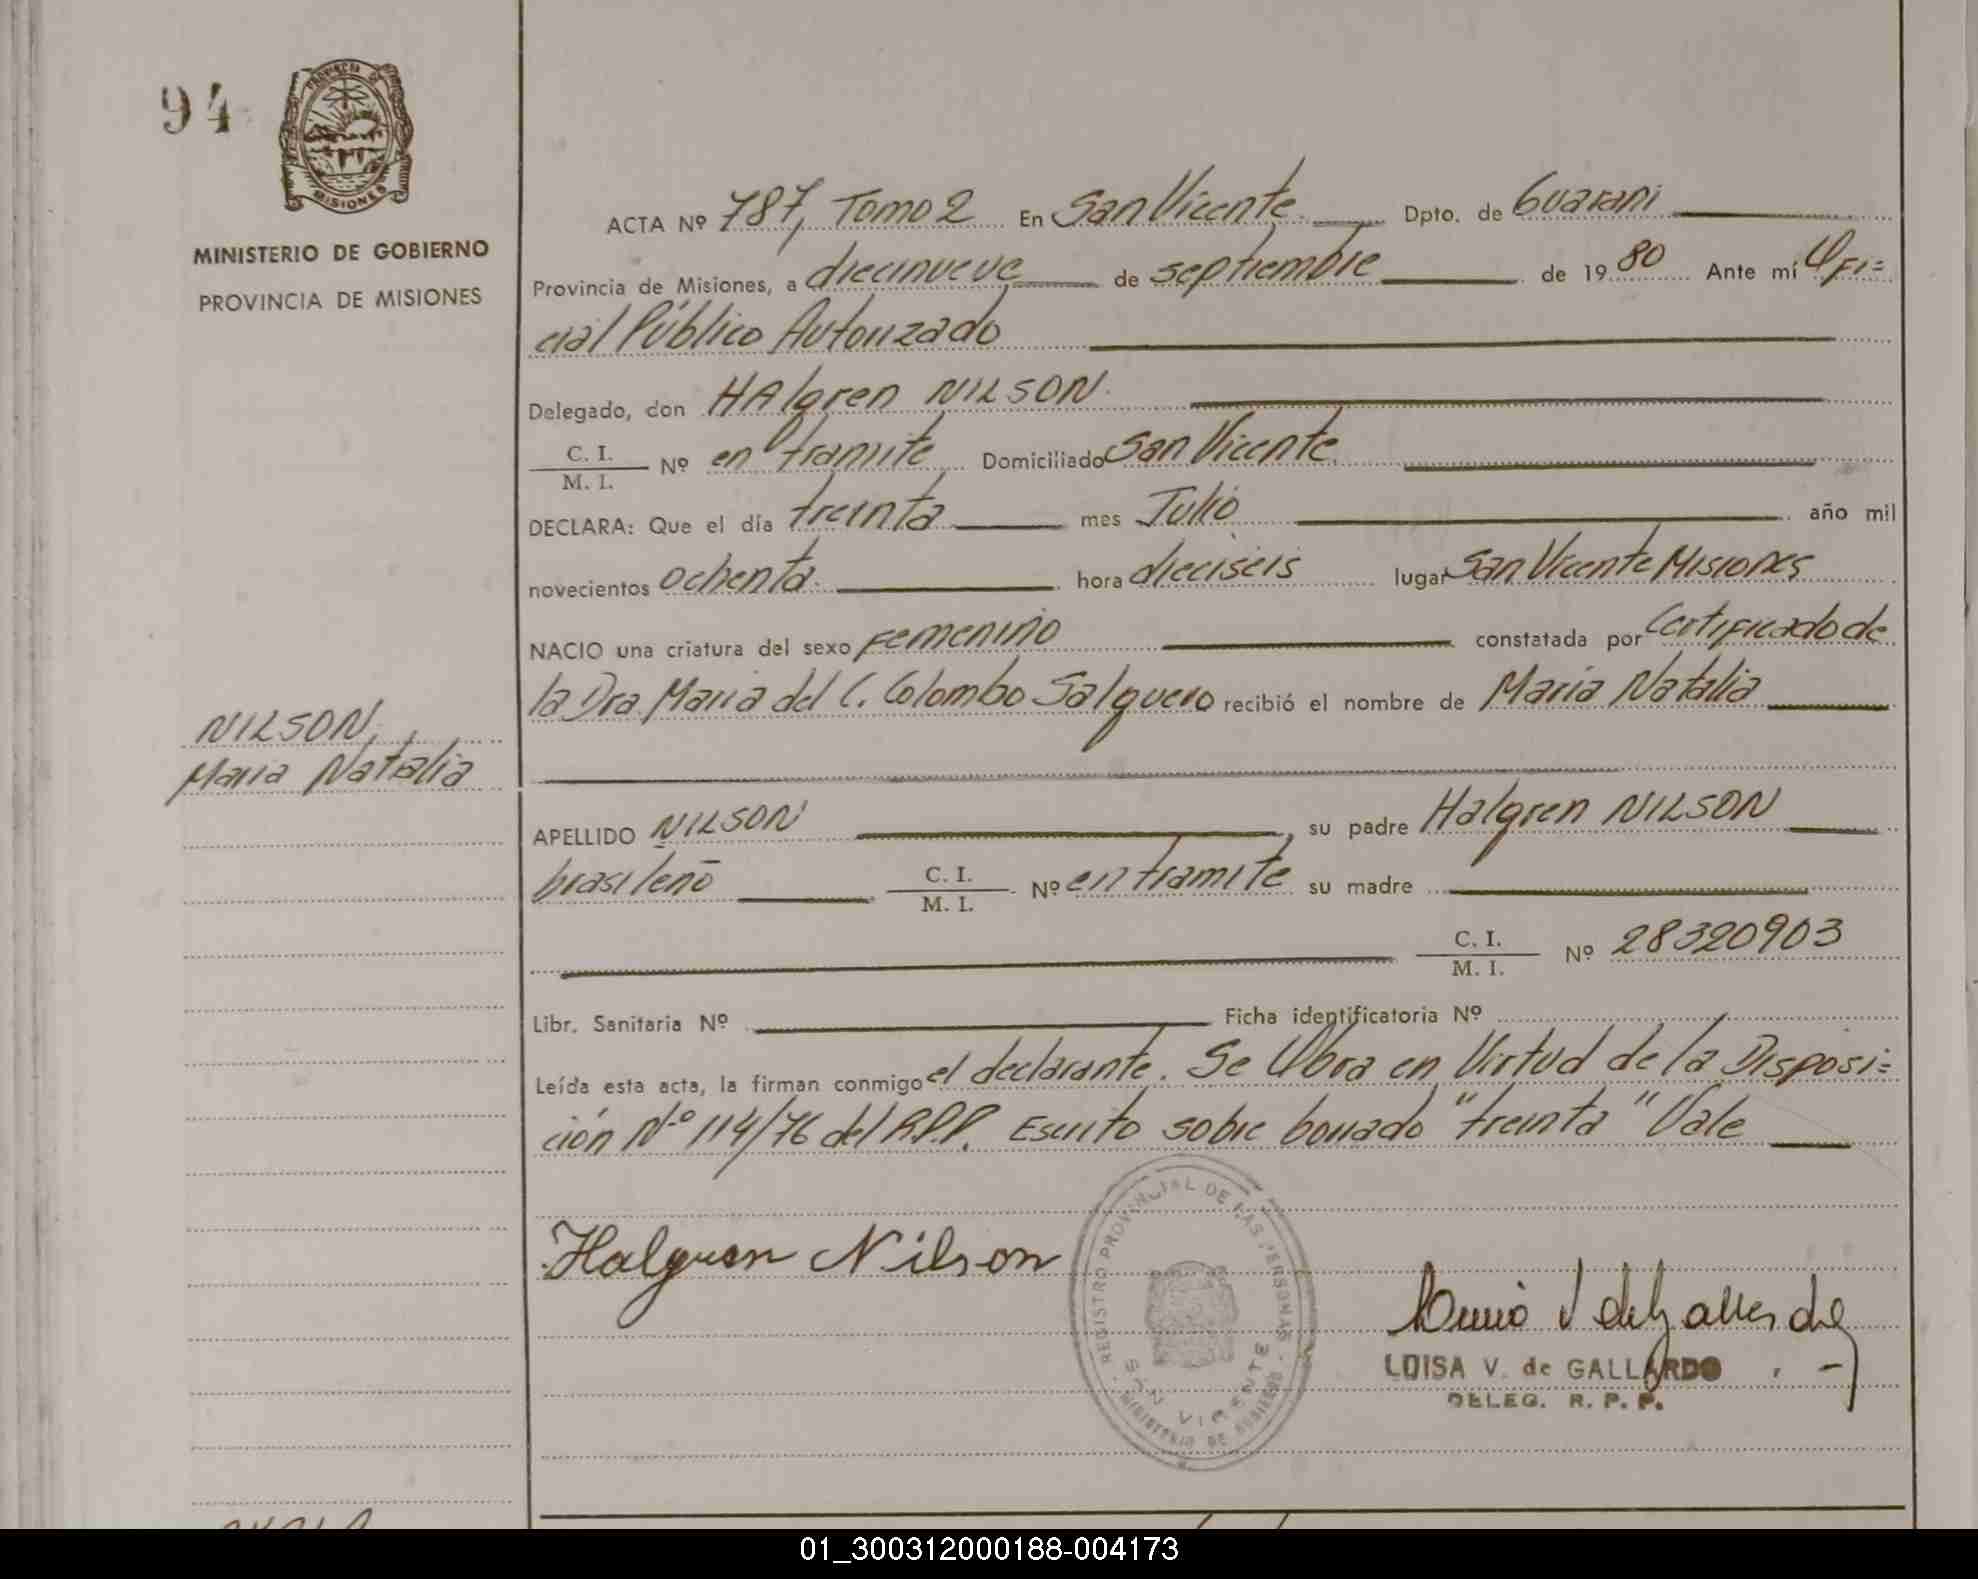 94
PROVINCIA DE
MISIONES
MINISTERIO DE GOBIERNO
PROVINCIA DE MISIONES
NILSON,
Maria Natalia
ACTA Nº 787, Tomo 2 En San Vicente Dpto. de Guarani
Provincia de Misiones, a diecinueve de septiembre de 1980 Ante mí Ofi=
cial Público Autorizado
Delegado, don HAlgren NILSON.
C. I.
M. I. Nº en tramite Domiciliado San Vicente
DECLARA: Que el día treinta mes Julio año mil
novecientos ochenta. hora dieciseis lugar San Vicente Misiones
NACIO una criatura del sexo Femenino constatada por Certificado de
la Dra. Maria del C. Colombo Salguero recibió el nombre de Maria Natalia
APELLIDO NILSON, su padre Halgren NILSON
brasileño C. I.
M. I. Nº en tramite su madre
C. I.
M. I. Nº 28320903
Libr. Sanitaria Nº Ficha identificatoria Nº
Leída esta acta, la firman conmigo el declarante. Se Obra en Virtud de la Disposi=
ción Nº 114/76 del R.P.P. Escrito sobre borrado "treinta" Vale
Halgren Nilson
REGISTRO PROVINCIAL DE LAS PERSONAS
SAN VICENTE
MINISTERIO DE GOBIERNO
LUISA V. de GALLARDO
DELEG. R. P. P.
01_300312000188-004173